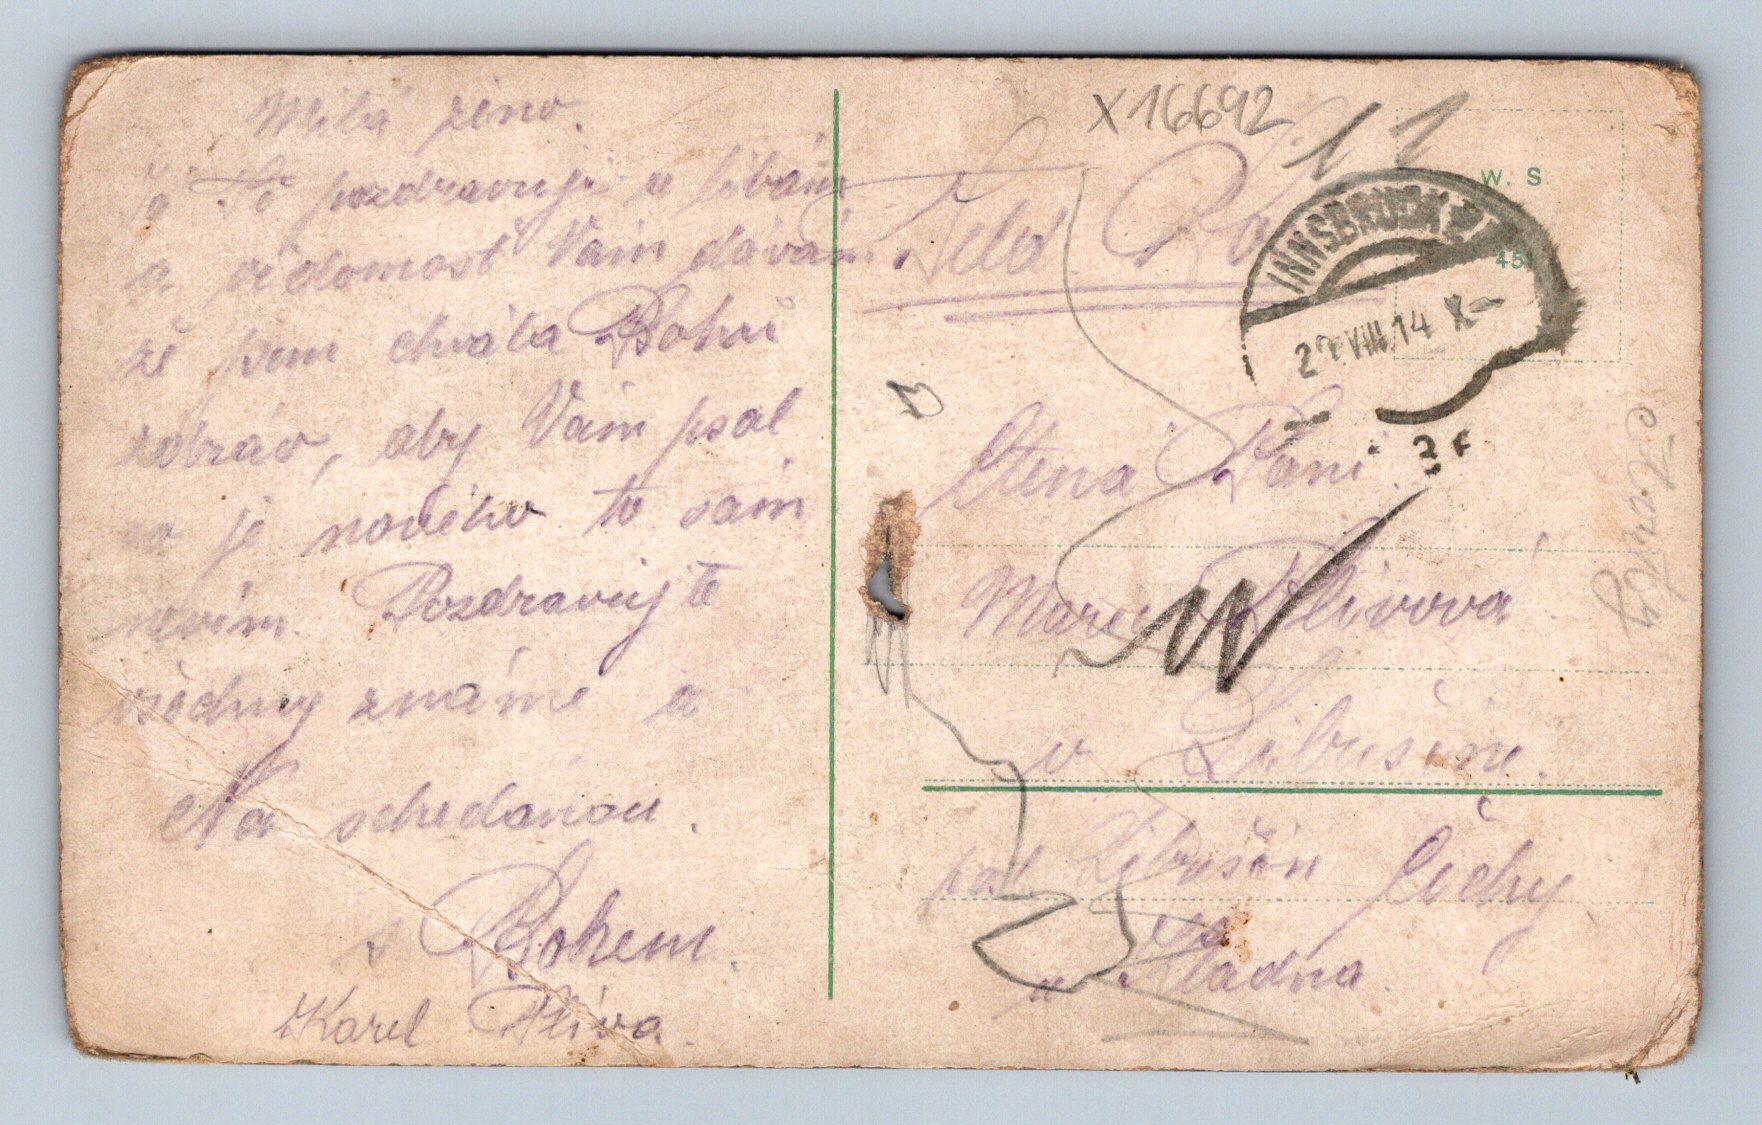 Milá ženo.
já Tě pozdravuji a líbám
a vědomost Vám dávám
že jsem chvála Bohu
zdráv, aby Vám psal
co je nového to sám
nevím. Pozdravujte
všechny známé a
Na schledanou.
s Bohem.
Karel Plíva.
X16692
11
Feld
W. S.
451
INNSBRUCK 2
27.VIII.14 X-
3f
Ctená Paní.
Marie Plívová
v Libušíně.
post Libušín Čechy
u Kladna.